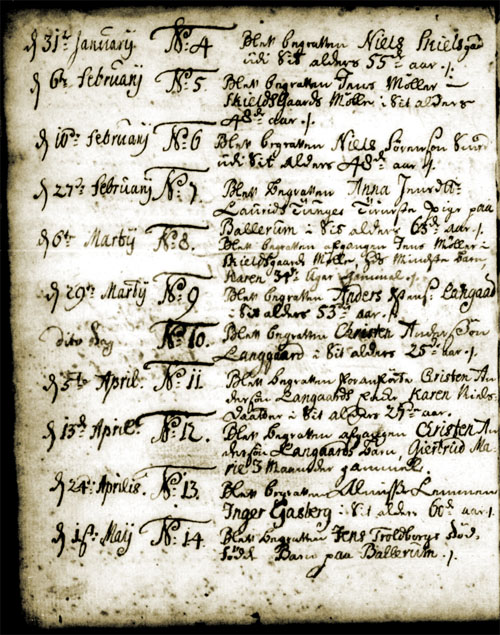 d 31te Januarij No: 4 Blef begraffen Niels Skielsgad
udi sit alders 55de aar.
d 6te Februarij No: 5 Blef begraffen Jens Møller i
Skieldsgaards Mølle i sit alders
48de aar.
d 16de Februarij No: 6 Blef begraffen Niels Sørensøn
udi sit alders 48de aar.
d 27te Februarij No: 7 Blef begraffen Anna
Laurids Pige paa
Ballerum i sit alders 63de aar.
d 6te Martij No: 8. Blef begraffen afgangen Jens Møller i
Skieldsgaards Mølle hds Mindste barn
Karen 34te Uger gammel.
d 29te Martij No: 9 Blef begraffen Anders Langaad
i sit alders 53de aar.
dito dag No: 10. Blef begraffen Christen Andersøn
Langgaard i sit alders 25de aar.
d 5te April: No: 11. Blef begraffen foranførte Cristen An
dersøn Langaards Karen Niels
Daatter i sit alders 29de aar.
d 13de April: No: 12. Blef begraffen afgangen Christen An
dersøn Langaards barn, Giertrud Ma
rie 3 Maaneder gammel.
d 24de Aprilis No: 13. Blef begraffen Almisse Lemmen
Inger i sit alders 60de aar.
d Maij No: 14. Blef begraffen Jens Troldborgs Død
født Barn paa Ballerum.